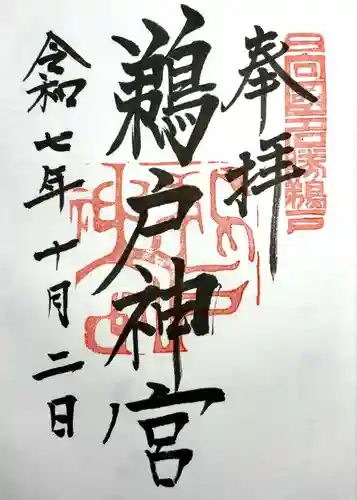 日向國名勝鵜戸
奉拝
鵜戸神宮
令和七年十月二日